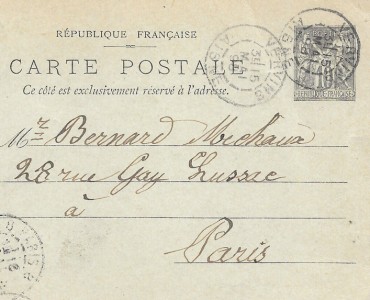 RÉPUBLIQUE FRANÇAISE
CARTE POSTALE
Ce côté est exclusivement réservé à l'adresse.
Mr Bernard Michaux
28 rue Gay Lussac
à
Paris
VERVINS
AISNE
MAI
PARIS